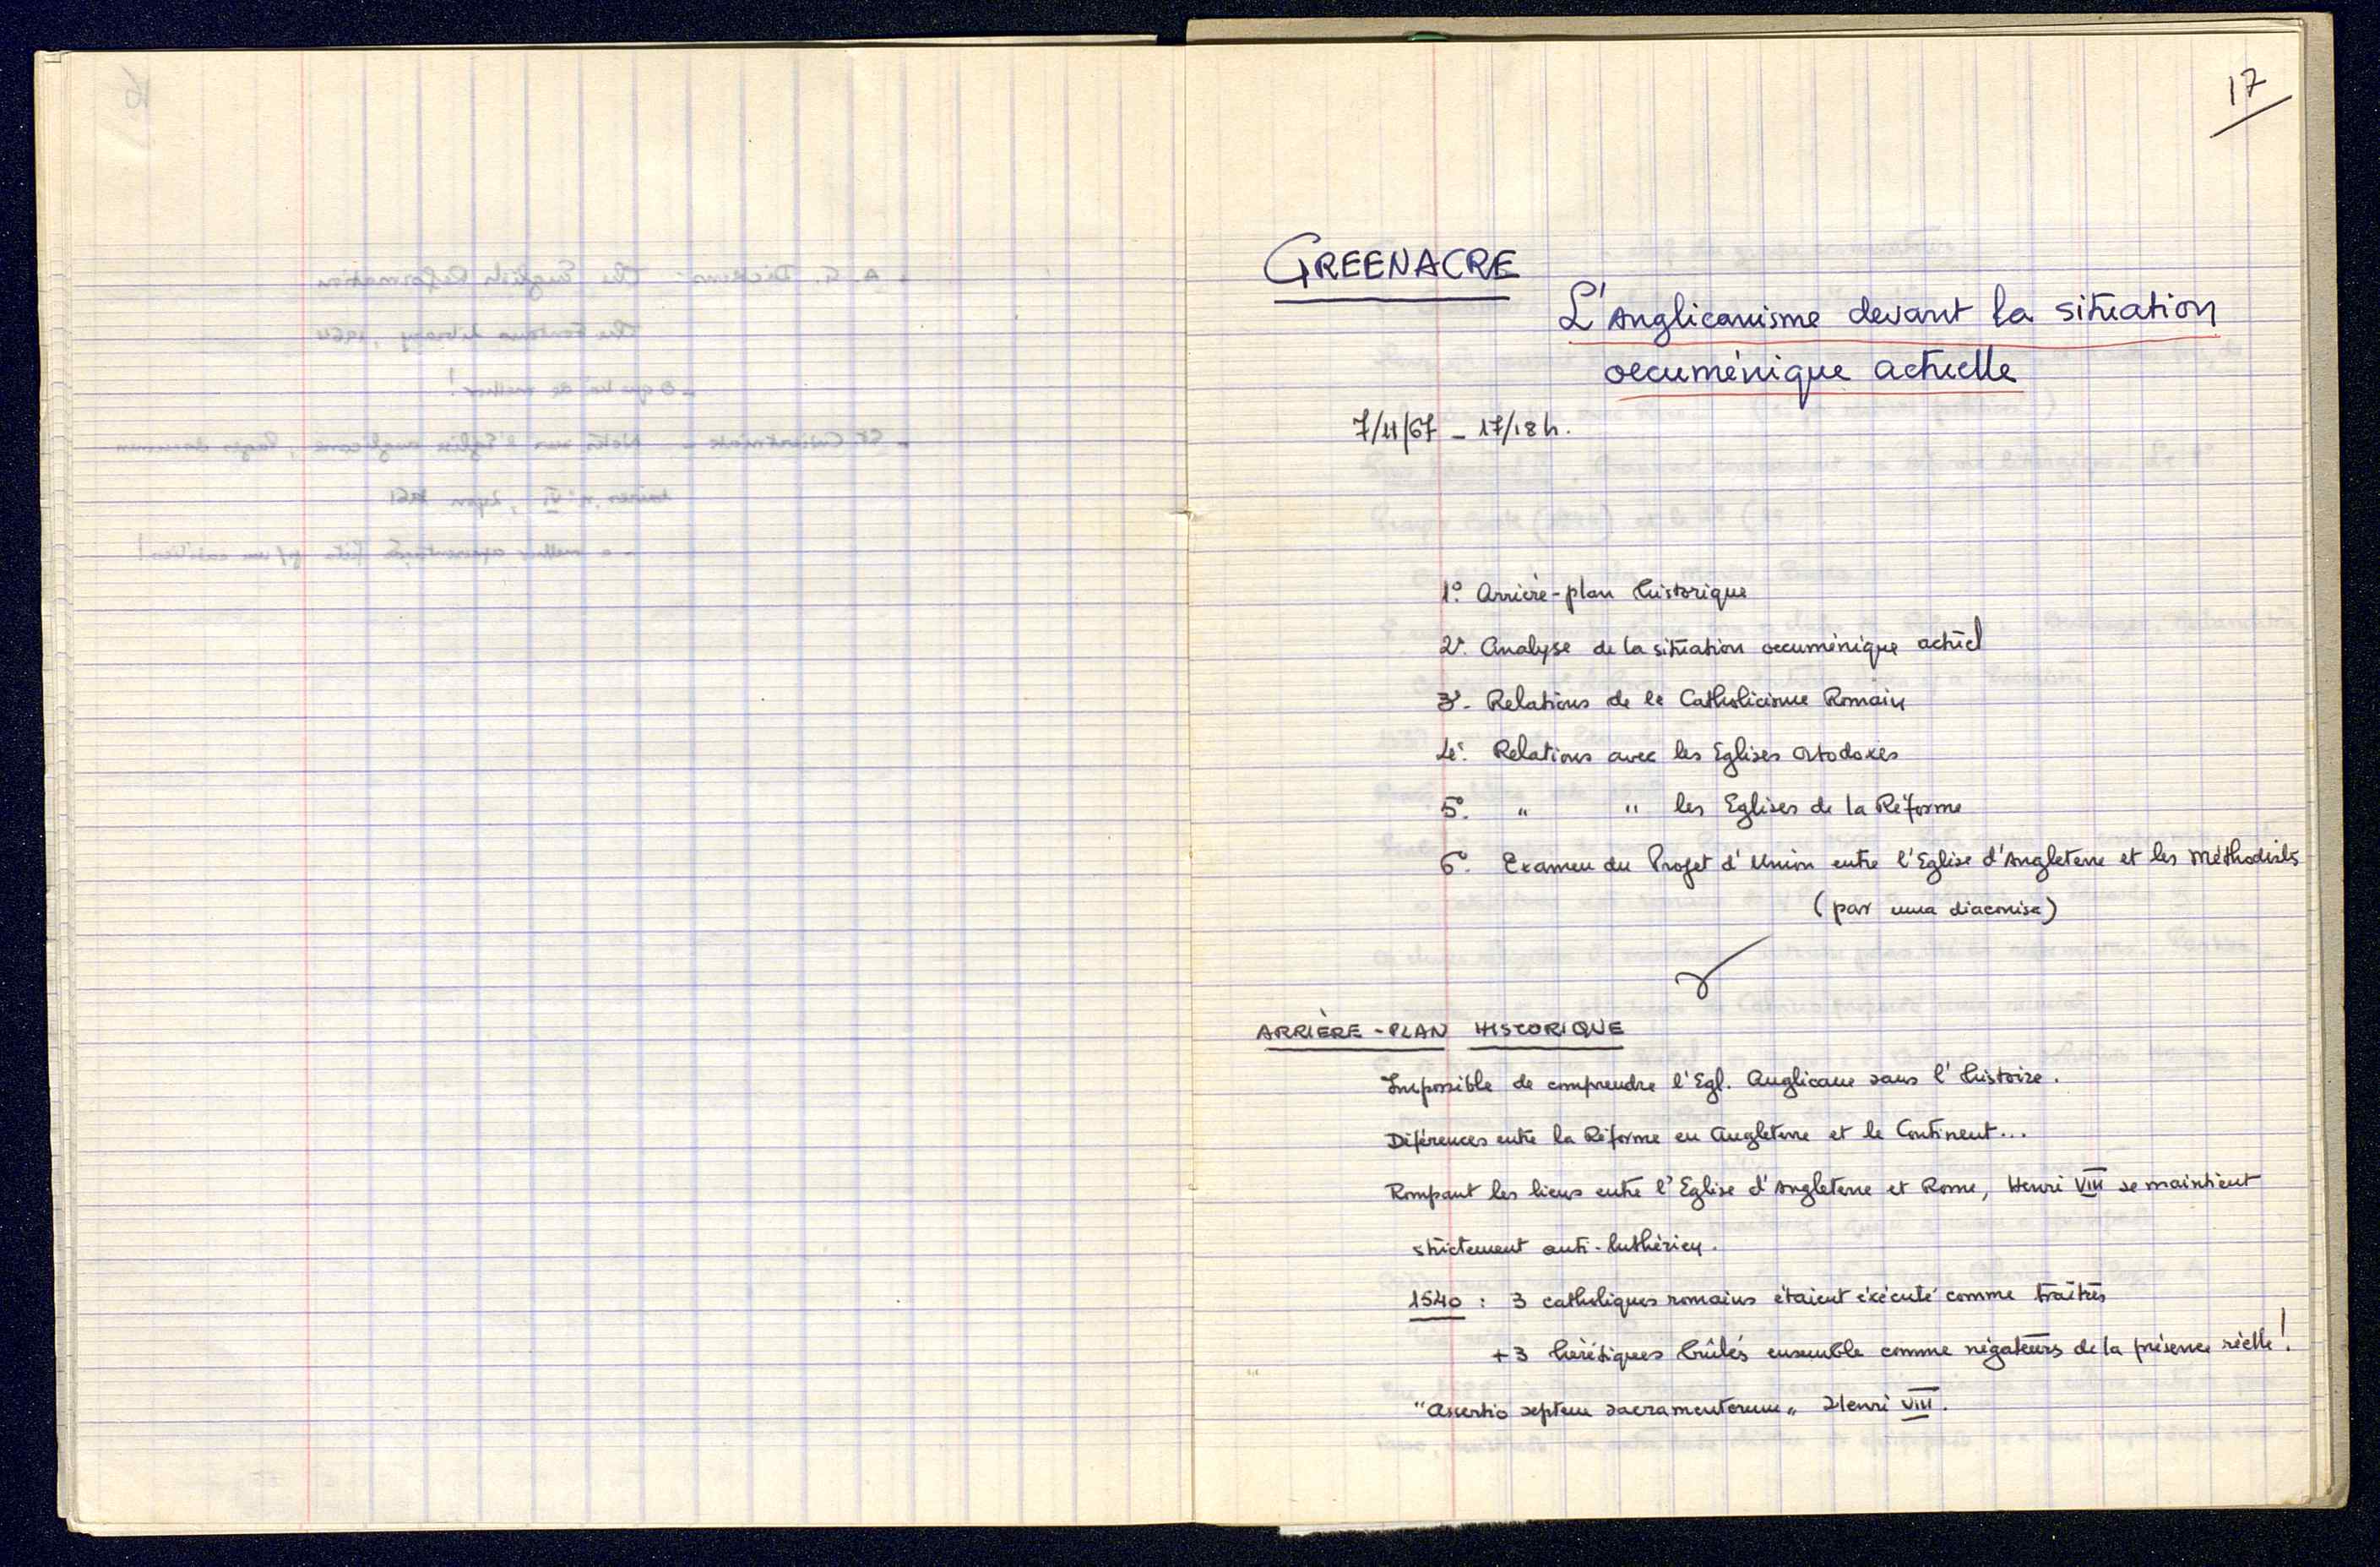 17
GREENACRE
L'Anglicanisme devant la situation
oecuménique actuelle
7/11/67 - 17/18 h.
1º. Arrière-plan historique
2º. Analyse de la situation oecuménique actuel
3º. Relations de le Catholicisme Romain
4º. Relations avec les Eglises Ortodoxes
5º. " " les Eglises de la Réforme
6º. Examen du Projet d'Union entre l'Eglise d'Angleterre et les Méthodists
(par una diaconisa)
ARRIÈRE-PLAN HISTORIQUE
Impossible de comprendre l'Egl. Anglicane sans l'histoire.
Diférences entre la Réforme en Angleterre et le Continent...
Rompant les liens entre l'Eglise d'Angleterre et Rome, Henri VIII se maintient
strictement anti-luthérien.
1540 : 3 catholiques romains étaient éxécuté comme traîtres
+3 hérétiques brûlés ensemble comme négateurs de la présence réelle!
"Assertio septem sacramentorum" Henri VIII.